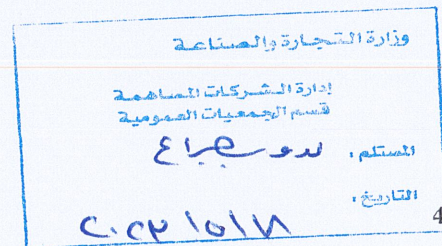 وزارة التجارة والصناعة
إدارة الشركات المساهمة
قسم الجمعيات العمومية
المستلم :
التاريخ : ٢٠٢٣/٥/١٨
4